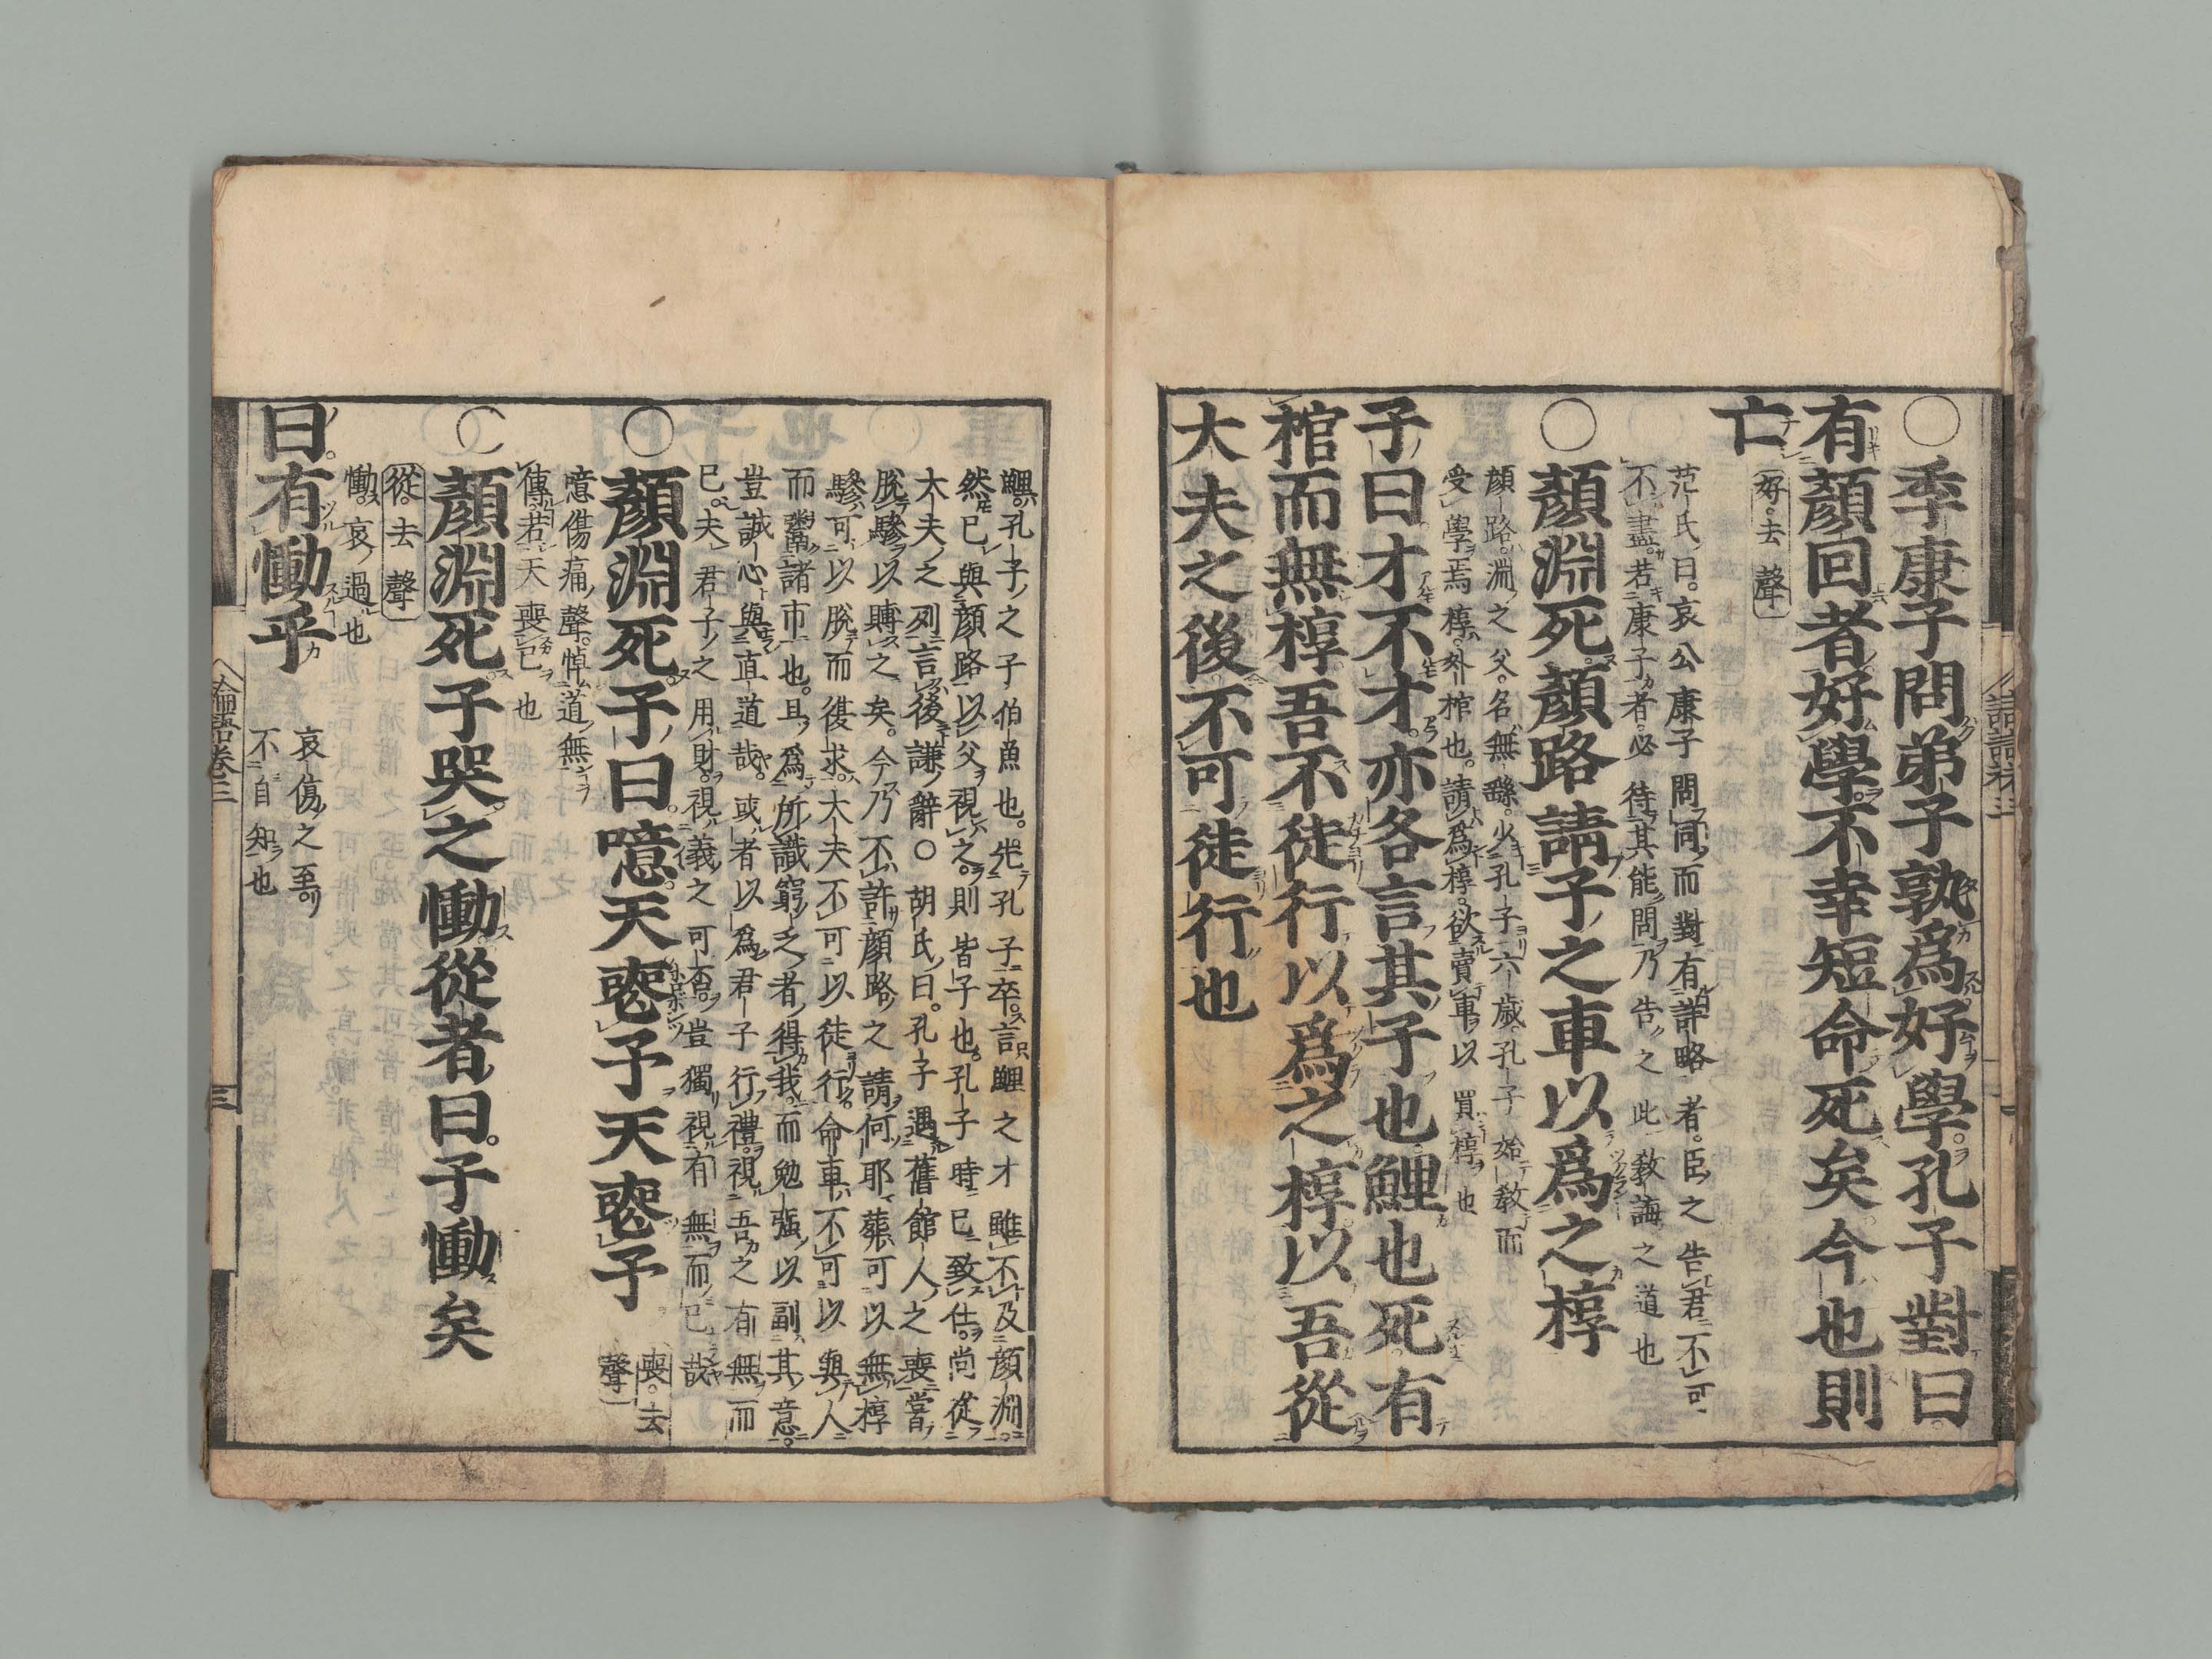 ○季康子問弟子孰爲好學孔子對曰
有顏回者好學不幸短命死矣今也則
亡
好去聲
范氏曰哀公康子問同而對有詳略者臣之告君不可
不盡若康子者必待其能問乃告之此敎誨之道也
○顏淵死顏路請子之車以爲之椁
顏路淵之父名無繇少孔子六歲孔子始敎而
受學焉椁外棺也請爲椁欲賣車以買椁也
子曰才不才亦各言其子也鯉也死有
棺而無椁吾不徒行以爲之椁以吾從
大夫之後不可徒行也
鯉孔子之子伯魚也先孔子卒言鯉之才雖不及顏淵
然已與顏路以父視之則皆子也孔子時已致仕尚從
大夫之列言後謙辭○胡氏曰孔子遇舊館人之喪嘗
脫驂以賻之矣今乃不許顏路之請何耶葬可以無椁
驂可以脫而復求大夫不可以徒行命車不可以與人
而鬻諸市也且爲所識窮乏者得我而勉强以副其意
豈誠心與直道哉或者以爲君子行禮視吾之有無而
已夫君子之用財視義之可否豈獨視有無而已哉
○顏淵死子曰噫天喪予天喪予
喪去聲
噫傷痛聲悼道無
傳若天喪已也
○顏淵死子哭之慟從者曰子慟矣
從去聲
慟哀過也
曰有慟乎
哀傷之至
不自知也
論語卷三
三